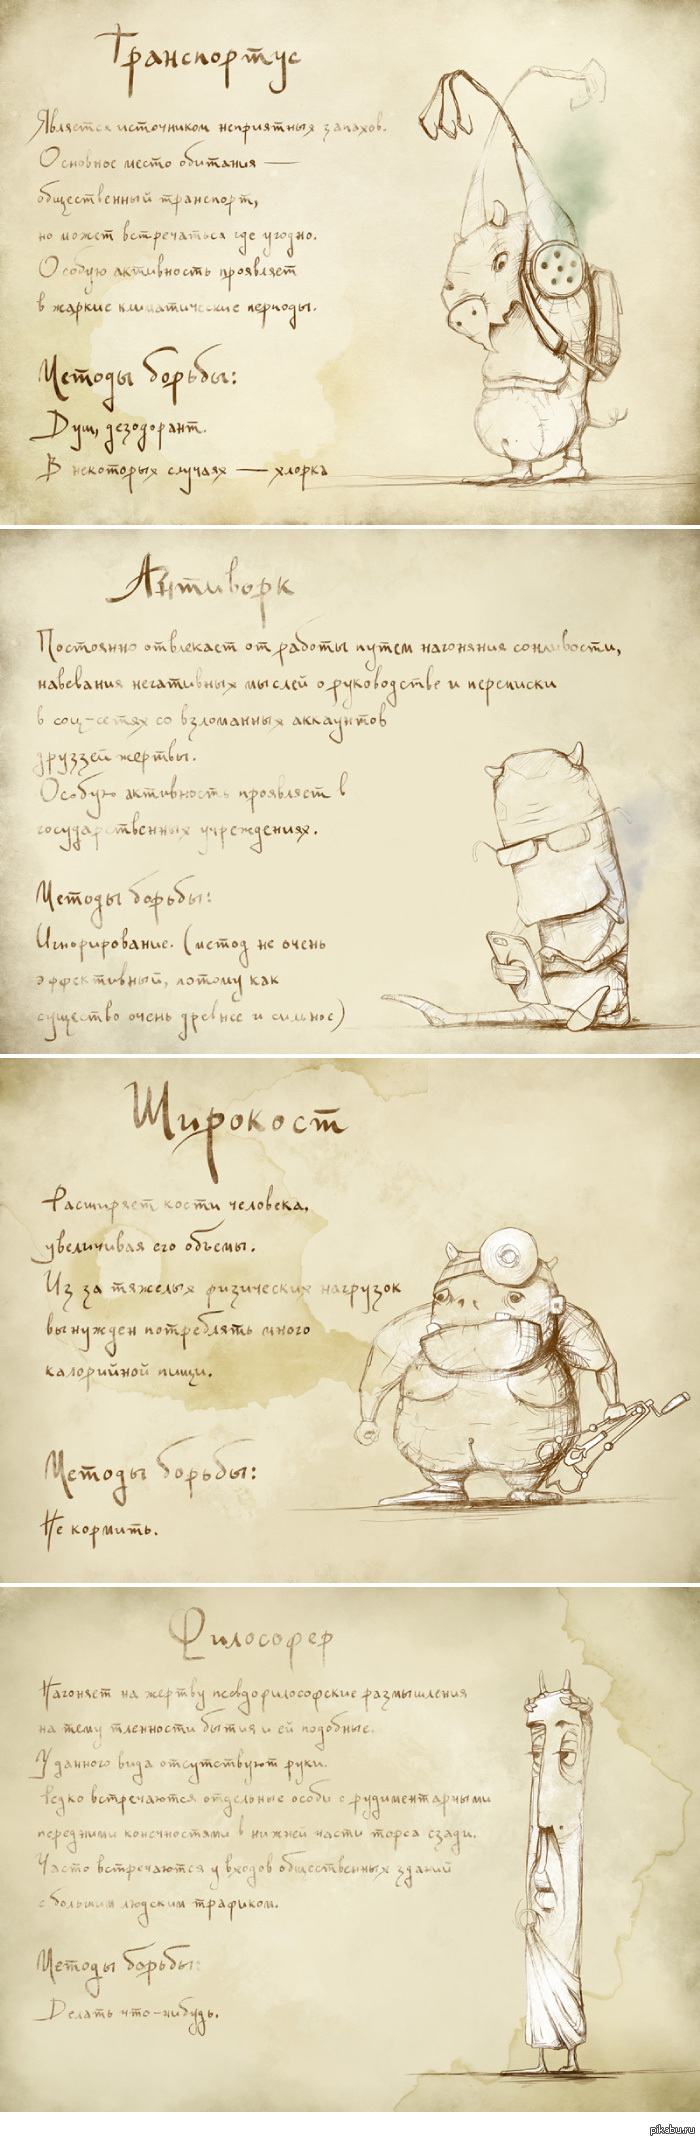 Транспортус
Является источником неприятных запахов.
Основное место обитания —
общественный транспорт,
но может встречаться где угодно.
Особую активность проявляет
в жаркие климатические периоды.
Методы борьбы:
Душ, дезодорант.
В некоторых случаях — хлорка
Антиворк
Постоянно отвлекает от работы путем нагоняния сонливости,
навевания негативных мыслей о руководстве и переписки
в соц-сетях со взломанных аккаунтов
друззей жертвы.
Особую активность проявляет в
государственных учреждениях.
Методы борьбы:
Игнорирование. (метод не очень
эффективный, потому как
существо очень древнее и сильное)
Широкост
Расширяет кости человека,
увеличивая его объемы.
Из за тяжелых физических нагрузок
вынужден потреблять много
калорийной пищи.
Методы борьбы:
Не кормить.
Философер
Нагоняет на жертву псевдофилософские размышления
на тему тленности бытия и ей подобные.
У данного вида отсутствуют руки.
Редко встречаются отдельные особи с рудиментарными
передними конечностями в нижней части торса сзади.
Часто встречаются у входов общественных зданий
с большим людским трафиком.
Методы борьбы:
Делать что-нибудь.
pikabu.ru